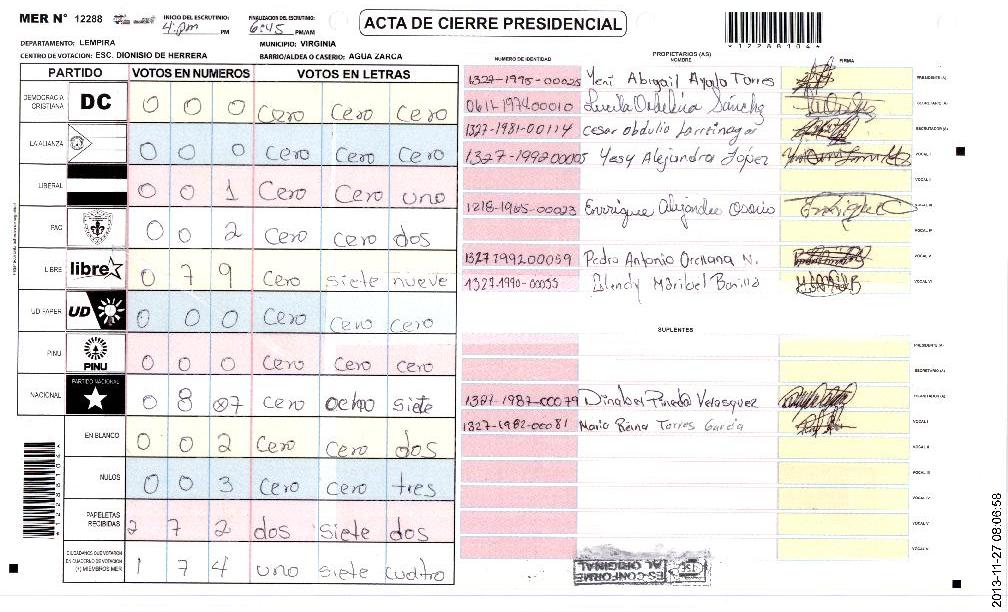 MER N° 12288
INICIO DEL ESCRUTINIO: 4:pm PM
FINALIZACION DEL ESCRUTINIO: 6:45 PM/AM
ACTA DE CIERRE PRESIDENCIAL
*12288104*
DEPARTAMENTO: LEMPIRA
MUNICIPIO: VIRGINIA
CENTRO DE VOTACION: ESC. DIONISIO DE HERRERA
BARRIO/ALDEA O CASERIO: AGUA ZARCA
PARTIDO VOTOS EN NUMEROS VOTOS EN LETRAS
DEMOCRACIA CRISTIANA DC 0 0 0 Cero Cero Cero
LA ALIANZA 0 0 0 Cero Cero Cero
LIBERAL 0 0 1 Cero Cero uno
PAC 0 0 2 Cero cero dos
LIBRE libre 0 7 9 Cero siete nueve
UD FAPER UD 0 0 0 Cero Cero Cero
PINU PINU 0 0 0 Cero Cero cero
NACIONAL PARTIDO NACIONAL 0 8 7 cero ocho siete
EN BLANCO 0 0 2 Cero Cero dos
NULOS 0 0 3 Cero cero tres
PAPELETAS RECIBIDAS 2 7 2 dos siete dos
CIUDADANOS QUE VOTARON EN CUADERNO DE VOTACION (+) MIEMBROS MER 1 7 4 uno siete cuatro
PROPIETARIOS (AS)
NUMERO DE IDENTIDAD NOMBRE FIRMA
1329-1995-00025 Yeni Abigail Ayala Torres PRESIDENTE (A)
0611-197400010 Lucila Sánchez SECRETARIO (A)
1327-1981-00114 cesar obdulio ESCRUTADOR (A)
1327-199200005 Yesy Alejandra López VOCAL I
VOCAL II
1218-1985-00023 Enrrique Alejandro Osorio VOCAL III
VOCAL IV
1327199200059 Pedro Antonio Orellana N. VOCAL V
1327-1990-00055 Blendy Maribel Bonilla VOCAL VI
SUPLENTES
PRESIDENTE (A)
SECRETARIO (A)
1387-1987-00079 Dinabel Pineda Velasquez ESCRUTADOR (A)
1327-1982-00081 Maria Reina Torres Garcia VOCAL I
VOCAL II
VOCAL III
VOCAL IV
VOCAL V
VOCAL VI
ES CONFORME AL ORIGINAL
TSE
*12288104*
2013-11-27 08:06:58